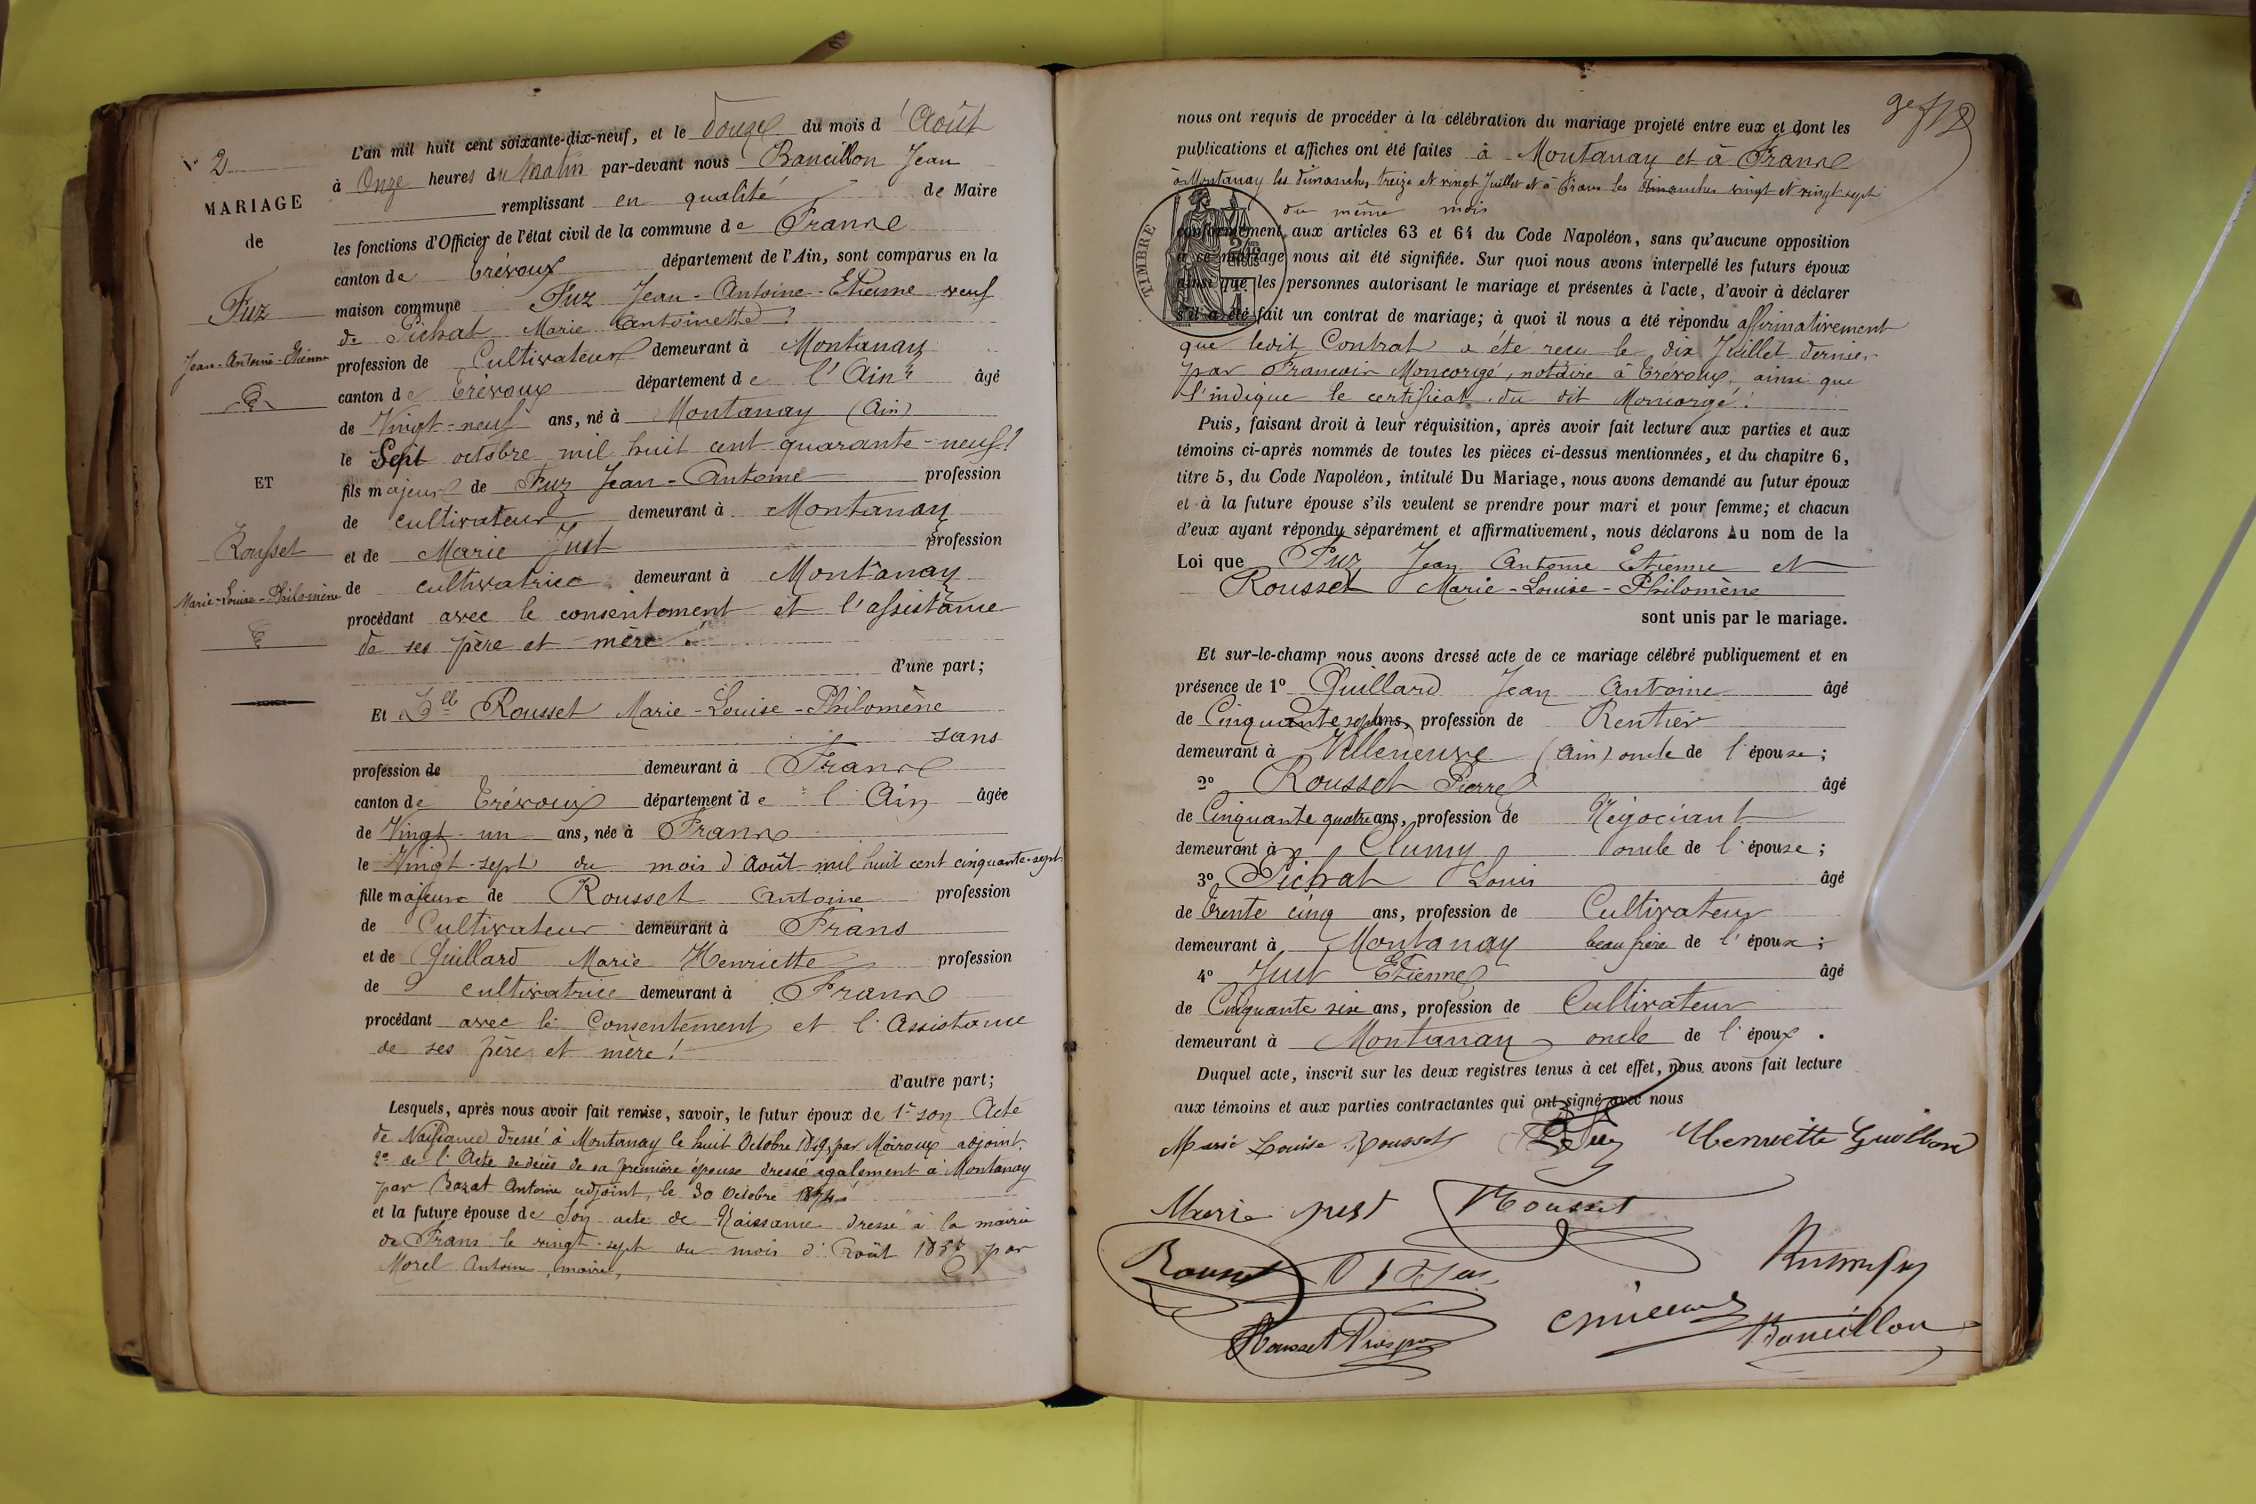 N° 2
MARIAGE
de
Fuz
Jean-Antoine-Etienne
ET
Rousset
Marie-Louise-Philomène
L'an mil huit cent soixante-dix-neuf, et le Douze du mois d'Août
à Onze heures du Matin par-devant nous Bancillon Jean
remplissant en qualité de Maire
les fonctions d'Officier de l'état civil de la commune de Frans
canton de Trévoux département de l'Ain, sont comparus en la
maison commune Fuz Jean-Antoine-Etienne veuf
de Pichat Marie Antoinette
profession de Cultivateur demeurant à Montanay
canton de Trévoux département de l'Ain âgé
de Vingt-neuf ans, né à Montanay (Ain)
le Sept octobre mil huit cent quarante-neuf
fils majeur de Fuz Jean-Antoine profession
de cultivateur demeurant à Montanay
et de Marie Just profession
de cultivatrice demeurant à Montanay
procédant avec le consentement et l'assistance
de ses père et mère
d'une part;
Et Dlle Rousset Marie-Louise-Philomène
sans
profession de demeurant à Frans
canton de Trévoux département de l'Ain âgée
de Vingt-un ans, née à Frans
le Vingt-sept du mois d'Août mil huit cent cinquante-sept
fille majeure de Rousset Antoine profession
de Cultivateur demeurant à Frans
et de Guillard Marie Henriette profession
de cultivatrice demeurant à Frans
procédant avec le Consentement et l'Assistance
de ses père et mère!
d'autre part;
Lesquels, après nous avoir fait remise, savoir, le futur époux de 1° son Acte
de Naissance dressé à Montanay le huit Octobre 1849, par Moiroux adjoint.
2° de l'Acte de décès de sa première épouse dressé également à Montanay
par Bazat Antoine adjoint, le 30 Octobre 1874
et la future épouse de Son acte de Naissance dressé à la mairie
de Frans le vingt-sept du mois d'Août 1857 par
Morel Antoine, maire,
nous ont requis de procéder à la célébration du mariage projeté entre eux et dont les
publications et affiches ont été faites à Montanay et à Frans
à Montanay les dimanches treize et vingt Juillet et à Frans les dimanches vingt et vingt-sept
du même mois
TIMBRE
conformément aux articles 63 et 64 du Code Napoléon, sans qu'aucune opposition
à ce mariage nous ait été signifiée. Sur quoi nous avons interpellé les futurs époux
ainsi que les personnes autorisant le mariage et présentes à l'acte, d'avoir à déclarer
s'il a été fait un contrat de mariage; à quoi il nous a été répondu affirmativement
que ledit Contrat a été reçu le dix Juillet dernier
par François Moncorgé, notaire à Trévoux, ainsi que
l'indique le certificat du dit Moncorgé!
Puis, faisant droit à leur réquisition, après avoir fait lecture aux parties et aux
témoins ci-après nommés de toutes les pièces ci-dessus mentionnées, et du chapitre 6,
titre 5, du Code Napoléon, intitulé Du Mariage, nous avons demandé au futur époux
et à la future épouse s'ils veulent se prendre pour mari et pour femme; et chacun
d'eux ayant répondu séparément et affirmativement, nous déclarons Au nom de la
Loi que Fuz Jean Antoine Etienne et
Rousset Marie-Louise-Philomène
sont unis par le mariage.
Et sur-le-champ nous avons dressé acte de ce mariage célébré publiquement et en
présence de 1° Guillard Jean Antoine âgé
de Cinquante sept ans, profession de Rentier
demeurant à Villeneuve (Ain) oncle de l'épouse;
2° Rousset Pierre âgé
de Cinquante quatre ans, profession de Négociant
demeurant à Cluny oncle de l'épouse;
3° Pichat Louis âgé
de Trente cinq ans, profession de Cultivateur
demeurant à Montanay beau frère de l'époux;
4° Just Etienne âgé
de Cinquante six ans, profession de Cultivateur
demeurant à Montanay oncle de l'époux.
Duquel acte, inscrit sur les deux registres tenus à cet effet, nous avons fait lecture
aux témoins et aux parties contractantes qui ont signé avec nous
Marie Louise Rousset Fuz Henriette Guillard
Marie just Rousset
Rousset
Rousset Prosper Bancillon